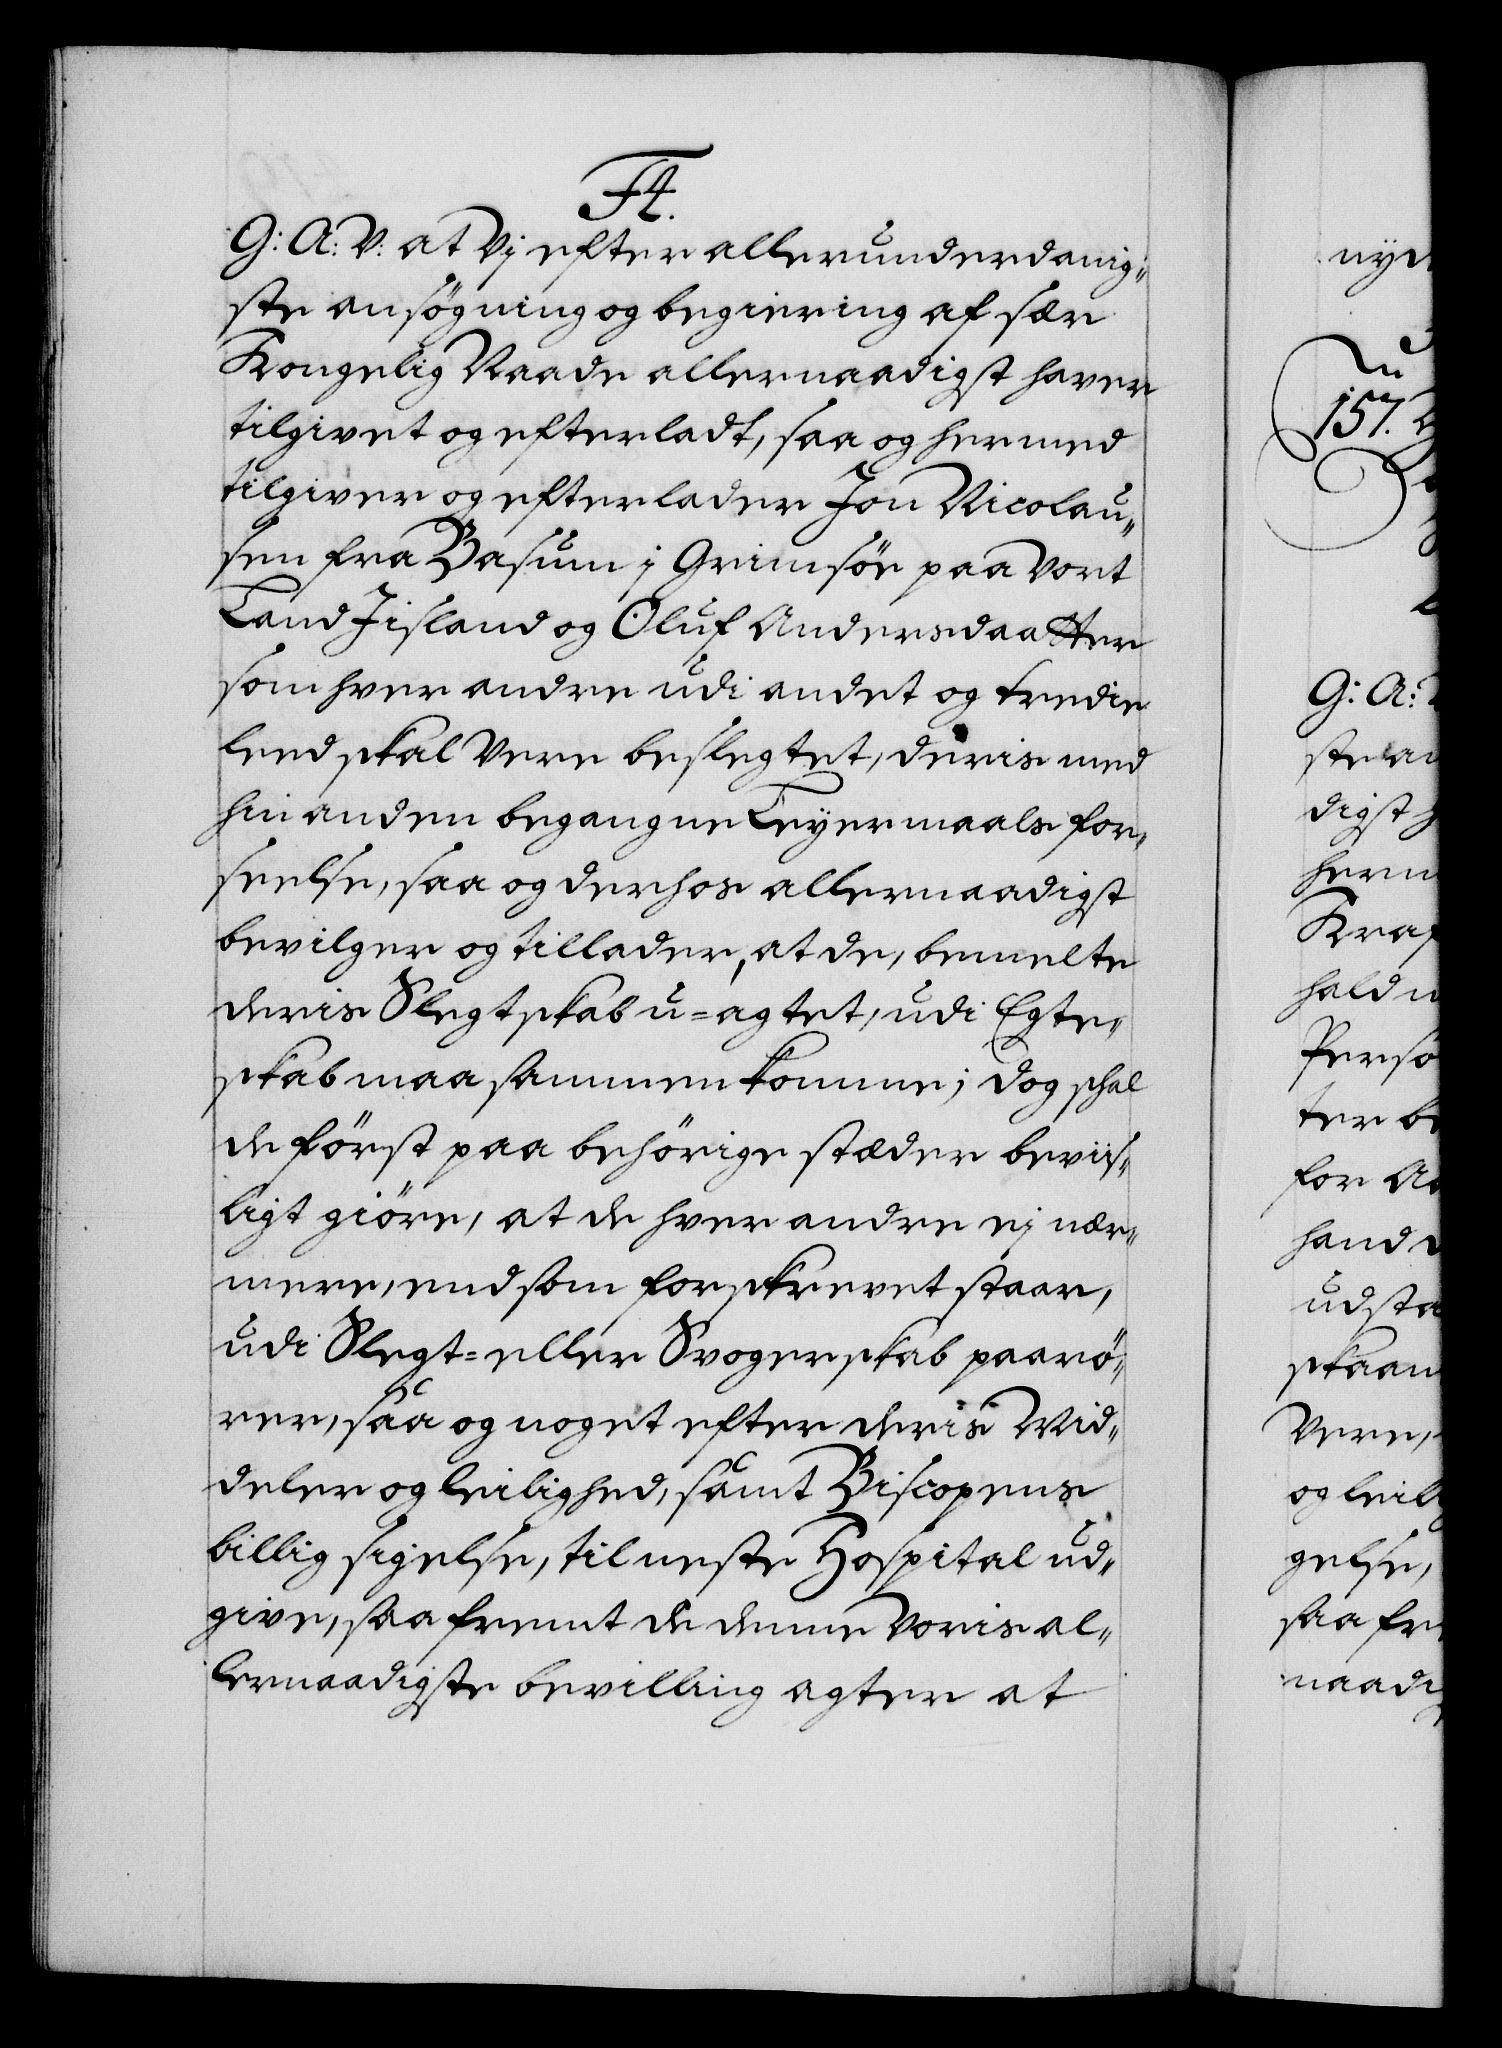 F4.
G: A: V: at Vj efter allerunderdanig-
ste ansøgning og begiering af sær
Kongelig Naade allernaadigst haver
tilgivet og efterladt, saa og hermed
tilgiver og efterlader Jon Nicolau-
sen fra Basum i Grimsöe paa vort
Land Jisland og Oluf Andersdaatter
som hver andre udi andet og tredie
leed skal Vere beslegtet, deris med
hin anden begangne Leyermaals for-
seelse, saa og derhos allernaadigst
bevilger og tillader, at de, bemelte
deris Slegtskab u-agtet, udi Egte-
skab maa sammenkomme; dog schal
de först paa behörige stæder beviis-
ligt giöre, at de hver andre ej nær-
mere, end som forskrevet staar,
udi Slegt- eller Svogerskab paarö-
rer, saa og noget efter deris Mid-
deler og leilighed, samt Biscopens
billig sigelse, til neste Hospital ud-
give, saa fremt de denne Voris al-
lernaadigste bevilling agter at
nyd
157.
G: A:
ste an
digst h
herm
Kraf
hald
Perso
ter be
for A
hand
udsta
skaan
Vere,
og leil
gelse,
saa fre
naadig